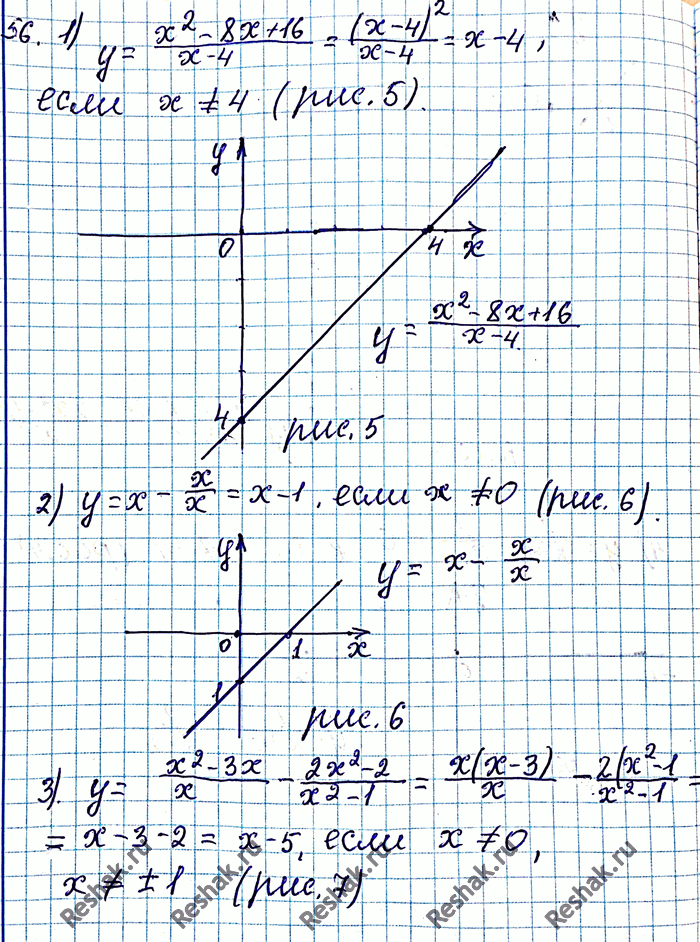 56. 1) y = \frac{x² - 8x + 16}{x - 4} = \frac{(x - 4)²}{x - 4} = x - 4,
если x ≠ 4 (рис. 5).
y
0 4 x
y = \frac{x² - 8x + 16}{x - 4}
4
рис. 5
2) y = x - \frac{x}{x} = x - 1, если x ≠ 0 (рис. 6).
y
y = x - \frac{x}{x}
0 1 x
1
рис. 6
3). y = \frac{x² - 3x}{x} - \frac{2x² - 2}{x² - 1} = \frac{x(x - 3)}{x} - \frac{2(x² - 1}{x² - 1} =
= x - 3 - 2 = x - 5, если x ≠ 0,
x ≠ ± 1 (рис. 7)
Reshak.ru Reshak.ru Reshak.ru Reshak.ru Reshak.ru